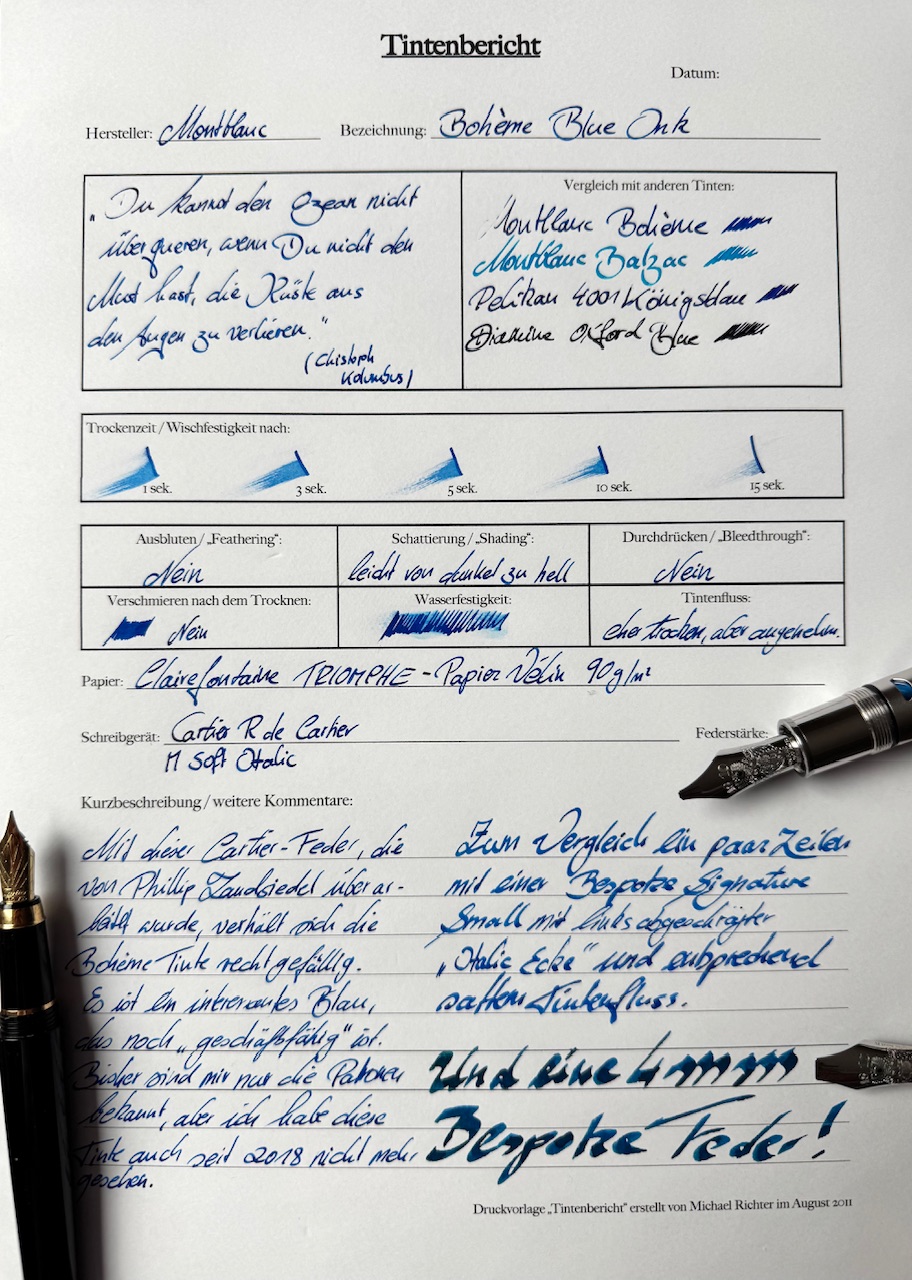 Tintenbericht
Datum:
Hersteller: Montblanc Bezeichnung: Bohème Blue Ink
„Du kannst den Ozean nicht
überqueren, wenn Du nicht den
Mut hast, die Küste aus
den Augen zu verlieren."
(Christoph
Kolumbus)
Vergleich mit anderen Tinten:
Montblanc Bohème
Montblanc Balzac
Pelikan 4001 Königsblau
Diamine Oxford Blue
Trockenzeit / Wischfestigkeit nach:
1 sek. 3 sek. 5 sek. 10 sek. 15 sek.
Ausbluten / „Feathering": Schattierung / „Shading": Durchdrücken / „Bleedthrough":
Nein leicht von dunkel zu hell Nein
Verschmieren nach dem Trocknen: Wasserfestigkeit: Tintenfluss:
Nein eher trocken, aber angenehm.
Papier: Clairefontaine TRIOMPHE - Papier Vélin 90g/m²
Schreibgerät: Cartier R de Cartier Federstärke:
M Soft Italic
Kurzbeschreibung / weitere Kommentare:
Mit dieser Cartier-Feder, die
von Phillip Zandsiedel überar-
beitet wurde, verhält sich die
Bohème Tinte recht gefällig.
Es ist ein interessantes Blau,
das noch „geschäftsfähig" ist.
Bisher sind mir nur die Patronen
bekannt, aber ich habe diese
Tinte auch seit 2018 nicht mehr
gesehen.
Zum Vergleich ein paar Zeilen
mit einer Bespoke Signature
Small mit links abgeschrägter
„Italic Ecke" und entsprechend
sattem Tintenfluss.
Und eine 4 mm
Bespoke Feder!
Druckvorlage „Tintenbericht" erstellt von Michael Richter im August 2011